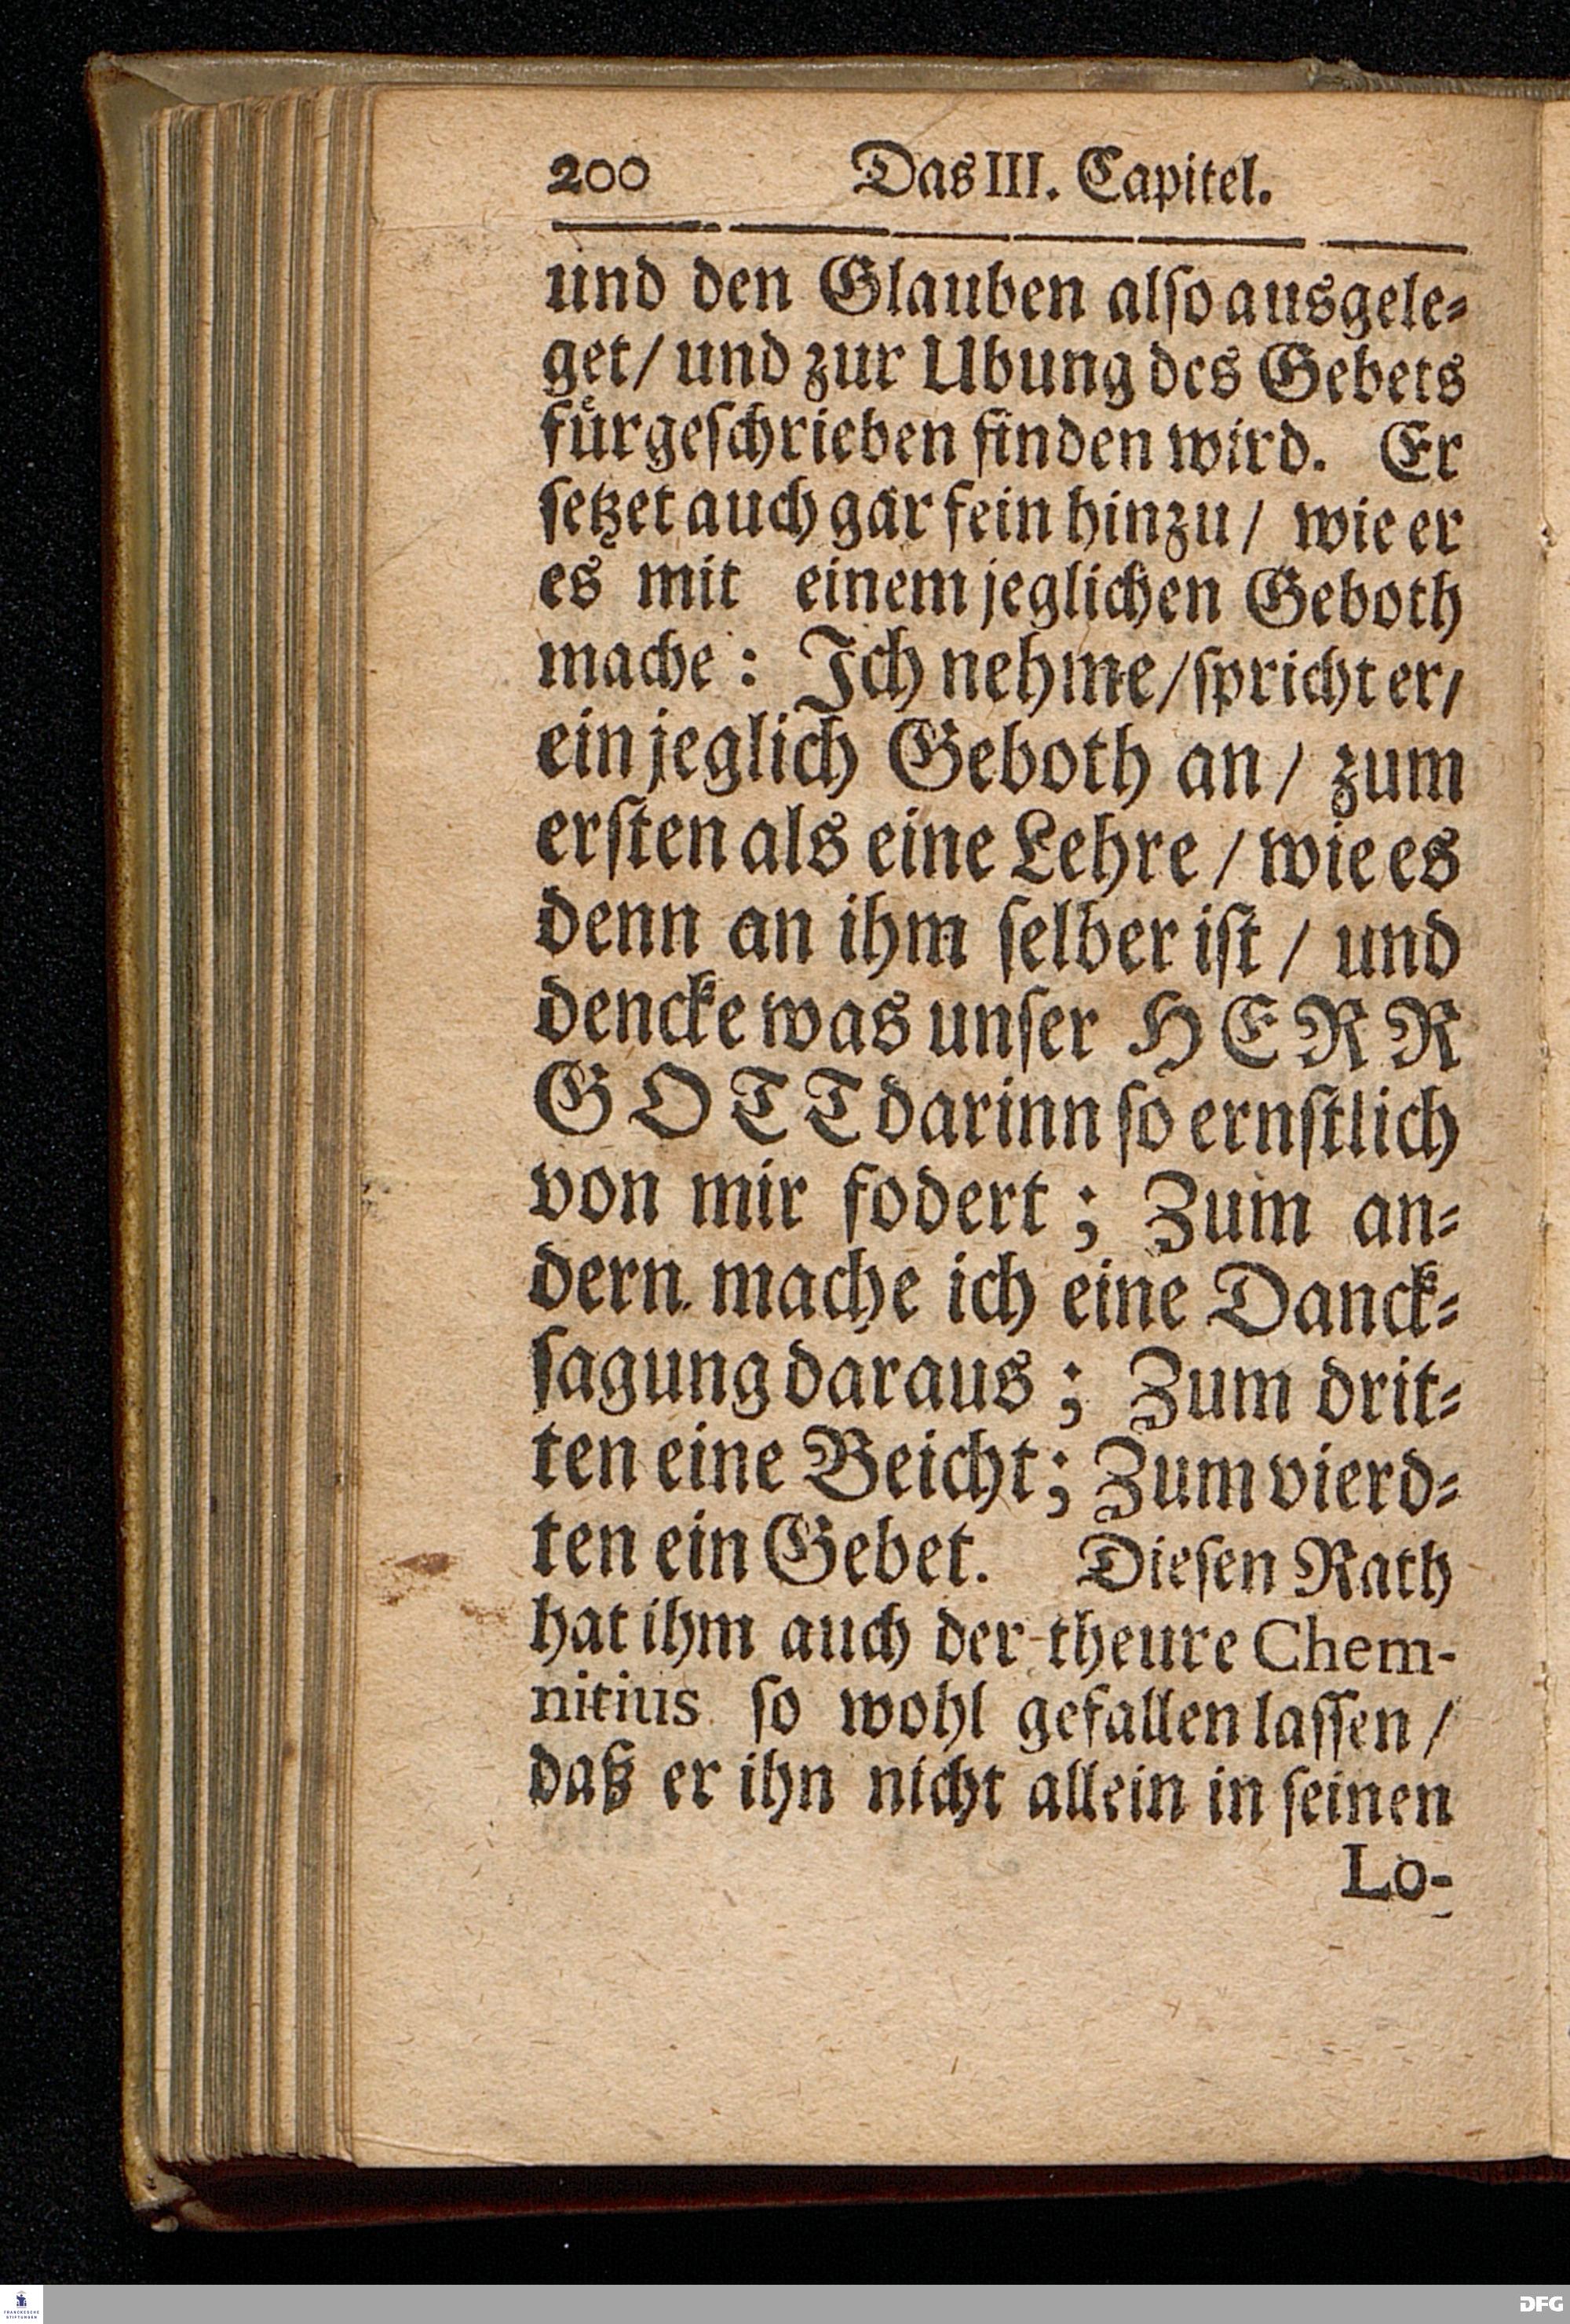 200 Das III. Capitel.
und den Glauben alſo ausgele⸗
get/ und zur Ubung des Gebets
fuͤrgeſchrieben finden wird. Er
ſetzet auch gar fein hinzu/ wie er
es mit einem jeglichen Geboth
mache: Ich nehme/ ſpricht er/
ein jeglich Geboth an/ zum
erſten als eine Lehre/ wie es
denn an ihm ſelber iſt/ und
dencke was unſer HERR
GOTT darinn ſo ernſtlich
von mir fodert; Zum an⸗
dern mache ich eine Danck⸗
ſagung daraus; Zum drit⸗
ten eine Beicht; Zum vierd⸗
ten ein Gebet. Dieſen Rath
hat ihm auch der theure Chem-
nitius ſo wohl gefallen laſſen/
daß er ihn nicht allein in ſeinen
Lo-
FRANCKESCHE
STIFTUNGEN
DFG